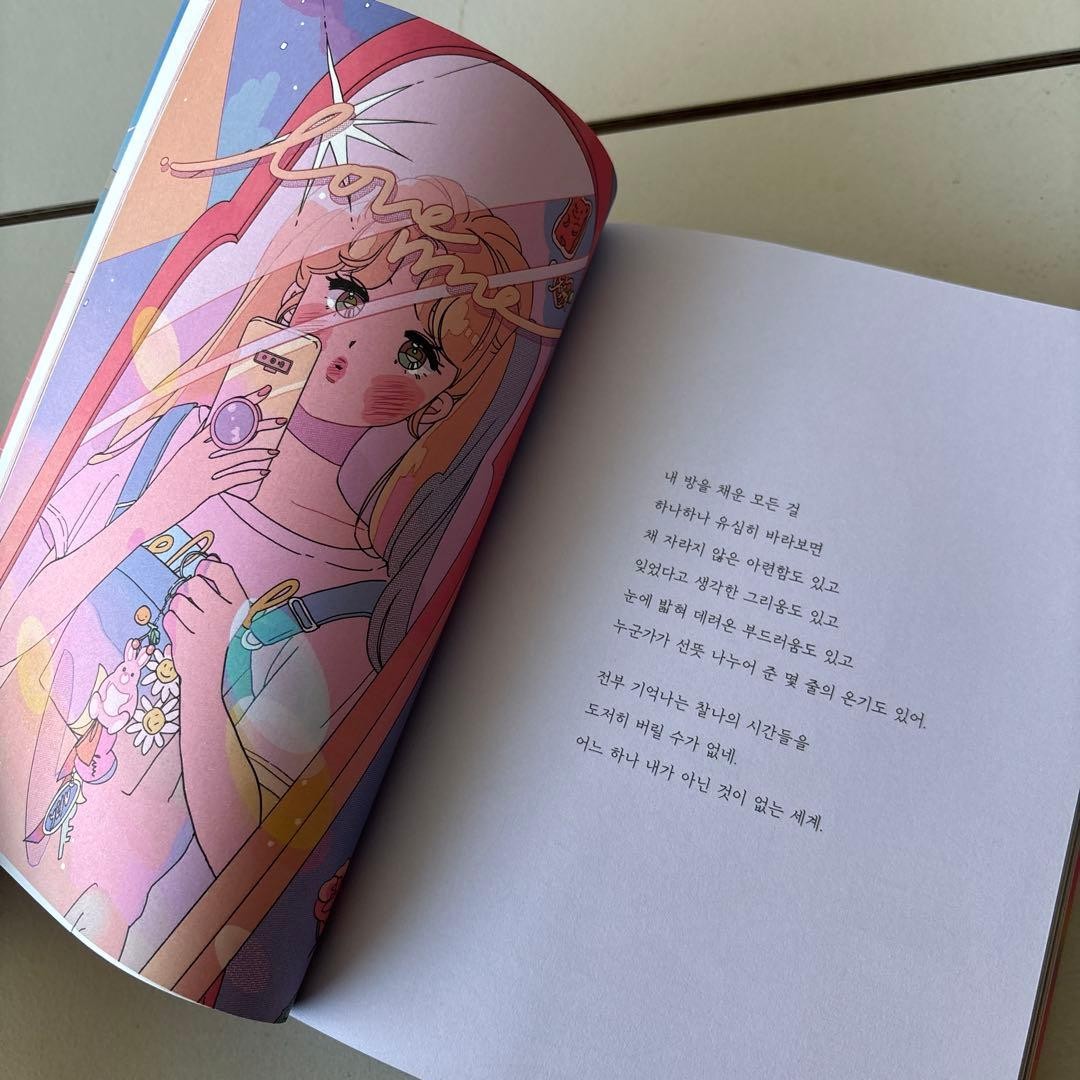 Love me
내 방을 채운 모든 걸
하나하나 유심히 바라보면
채 자라지 않은 아련함도 있고
잊었다고 생각한 그리움도 있고
눈에 밟혀 데려온 부드러움도 있고
누군가가 선뜻 나누어 준 몇 줄의 온기도 있어.
전부 기억나는 찰나의 시간들을
도저히 버릴 수가 없네.
어느 하나 내가 아닌 것이 없는 세계.